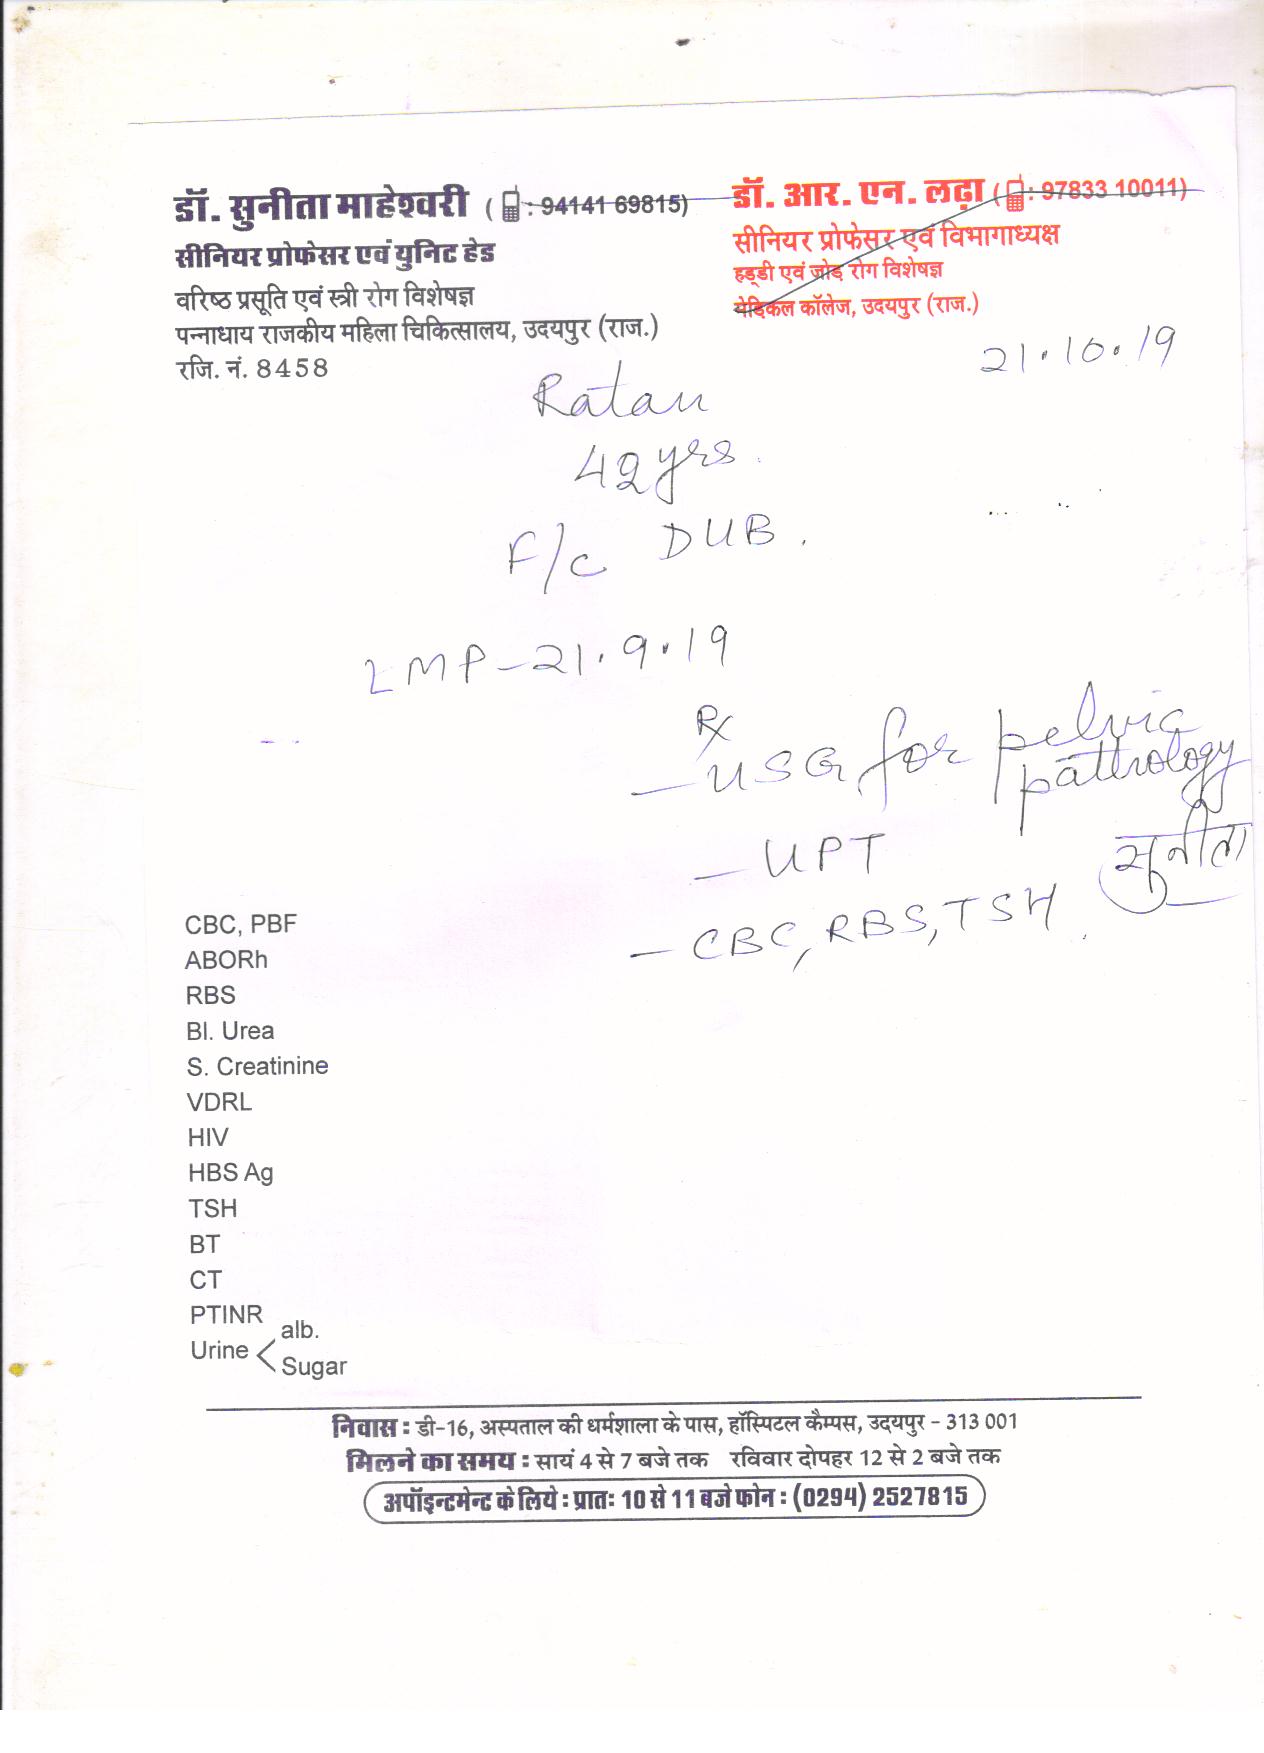 डॉ. सुनीता माहेश्वरी ( : 94141 69815)
सीनियर प्रोफेसर एवं युनिट हेड
वरिष्ठ प्रसूति एवं स्त्री रोग विशेषज्ञ
पन्नाधाय राजकीय महिला चिकित्सालय, उदयपुर (राज.)
रजि. नं. 8458
डॉ. आर. एन. लढ़ा ( : 97833 10011)
सीनियर प्रोफेसर एवं विभागाध्यक्ष
हड्डी एवं जोड़ रोग विशेषज्ञ
मेडिकल कॉलेज, उदयपुर (राज.)
21.10.19
Ratan
42 yrs.
F/c DUB.
LMP - 21.9.19
Rx
- USG for pelvic
pathology
- UPT
सुनीता
- CBC, RBS, TSH.
CBC, PBF
ABORh
RBS
Bl. Urea
S. Creatinine
VDRL
HIV
HBS Ag
TSH
BT
CT
PTINR
Urine < alb.
Sugar
निवास : डी-16, अस्पताल की धर्मशाला के पास, हॉस्पिटल कैम्पस, उदयपुर - 313 001
मिलने का समय : सायं 4 से 7 बजे तक रविवार दोपहर 12 से 2 बजे तक
अपॉइन्टमेन्ट के लिये : प्रातः 10 से 11 बजे फोन : (0294) 2527815